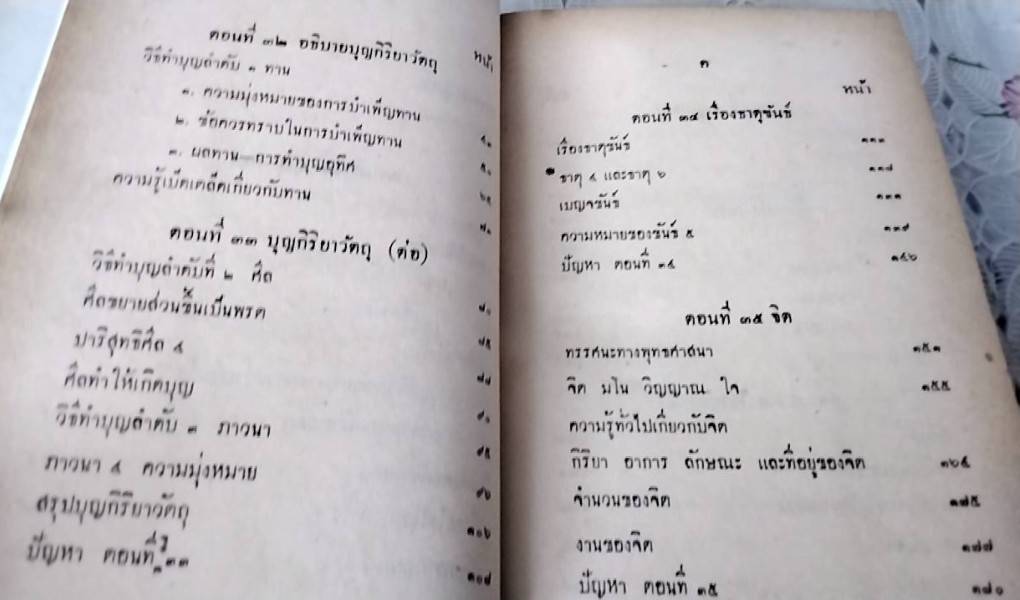 ตอนที่ ๓๒ อธิบายบุญกิริยาวัตถุ หน้า
วิธีทำบุญลำดับ ๑ ทาน
๑. ความมุ่งหมายของการบำเพ็ญทาน
๒. ข้อควรทราบในการบำเพ็ญทาน
๓. ผลทาน—การทำบุญอุทิศ
ความรู้เบ็ดเตล็ดเกี่ยวกับทาน
ตอนที่ ๓๓ บุญกิริยาวัตถุ (ต่อ)
วิธีทำบุญลำดับที่ ๒ ศีล
ศีลขยายส่วนขึ้นเป็นพรต
ปาริสุทธิศีล ๔
ศีลทำให้เกิดบุญ
วิธีทำบุญลำดับ ๓ ภาวนา
ภาวนา ๔ ความมุ่งหมาย
สรุปบุญกิริยาวัตถุ
ปัญหา ตอนที่ ๓๓
ค
หน้า
ตอนที่ ๓๔ เรื่องธาตุขันธ์
เรื่องธาตุขันธ์ ๑๑๓
ธาตุ ๔ และธาตุ ๖ ๑๑๘
เบญจขันธ์ ๑๓๑
ความหมายของขันธ์ ๕ ๑๓๙
ปัญหา ตอนที่ ๓๔ ๑๔๖
ตอนที่ ๓๕ จิต
ทรรศนะทางพุทธศาสนา ๑๕๑
จิต มโน วิญญาณ ใจ ๑๕๕
ความรู้ทั่วไปเกี่ยวกับจิต
กิริยา อาการ ลักษณะ และที่อยู่ของจิต ๑๖๔
จำนวนของจิต ๑๗๕
งานของจิต ๑๗๗
ปัญหา ตอนที่ ๓๕ ๑๘๐